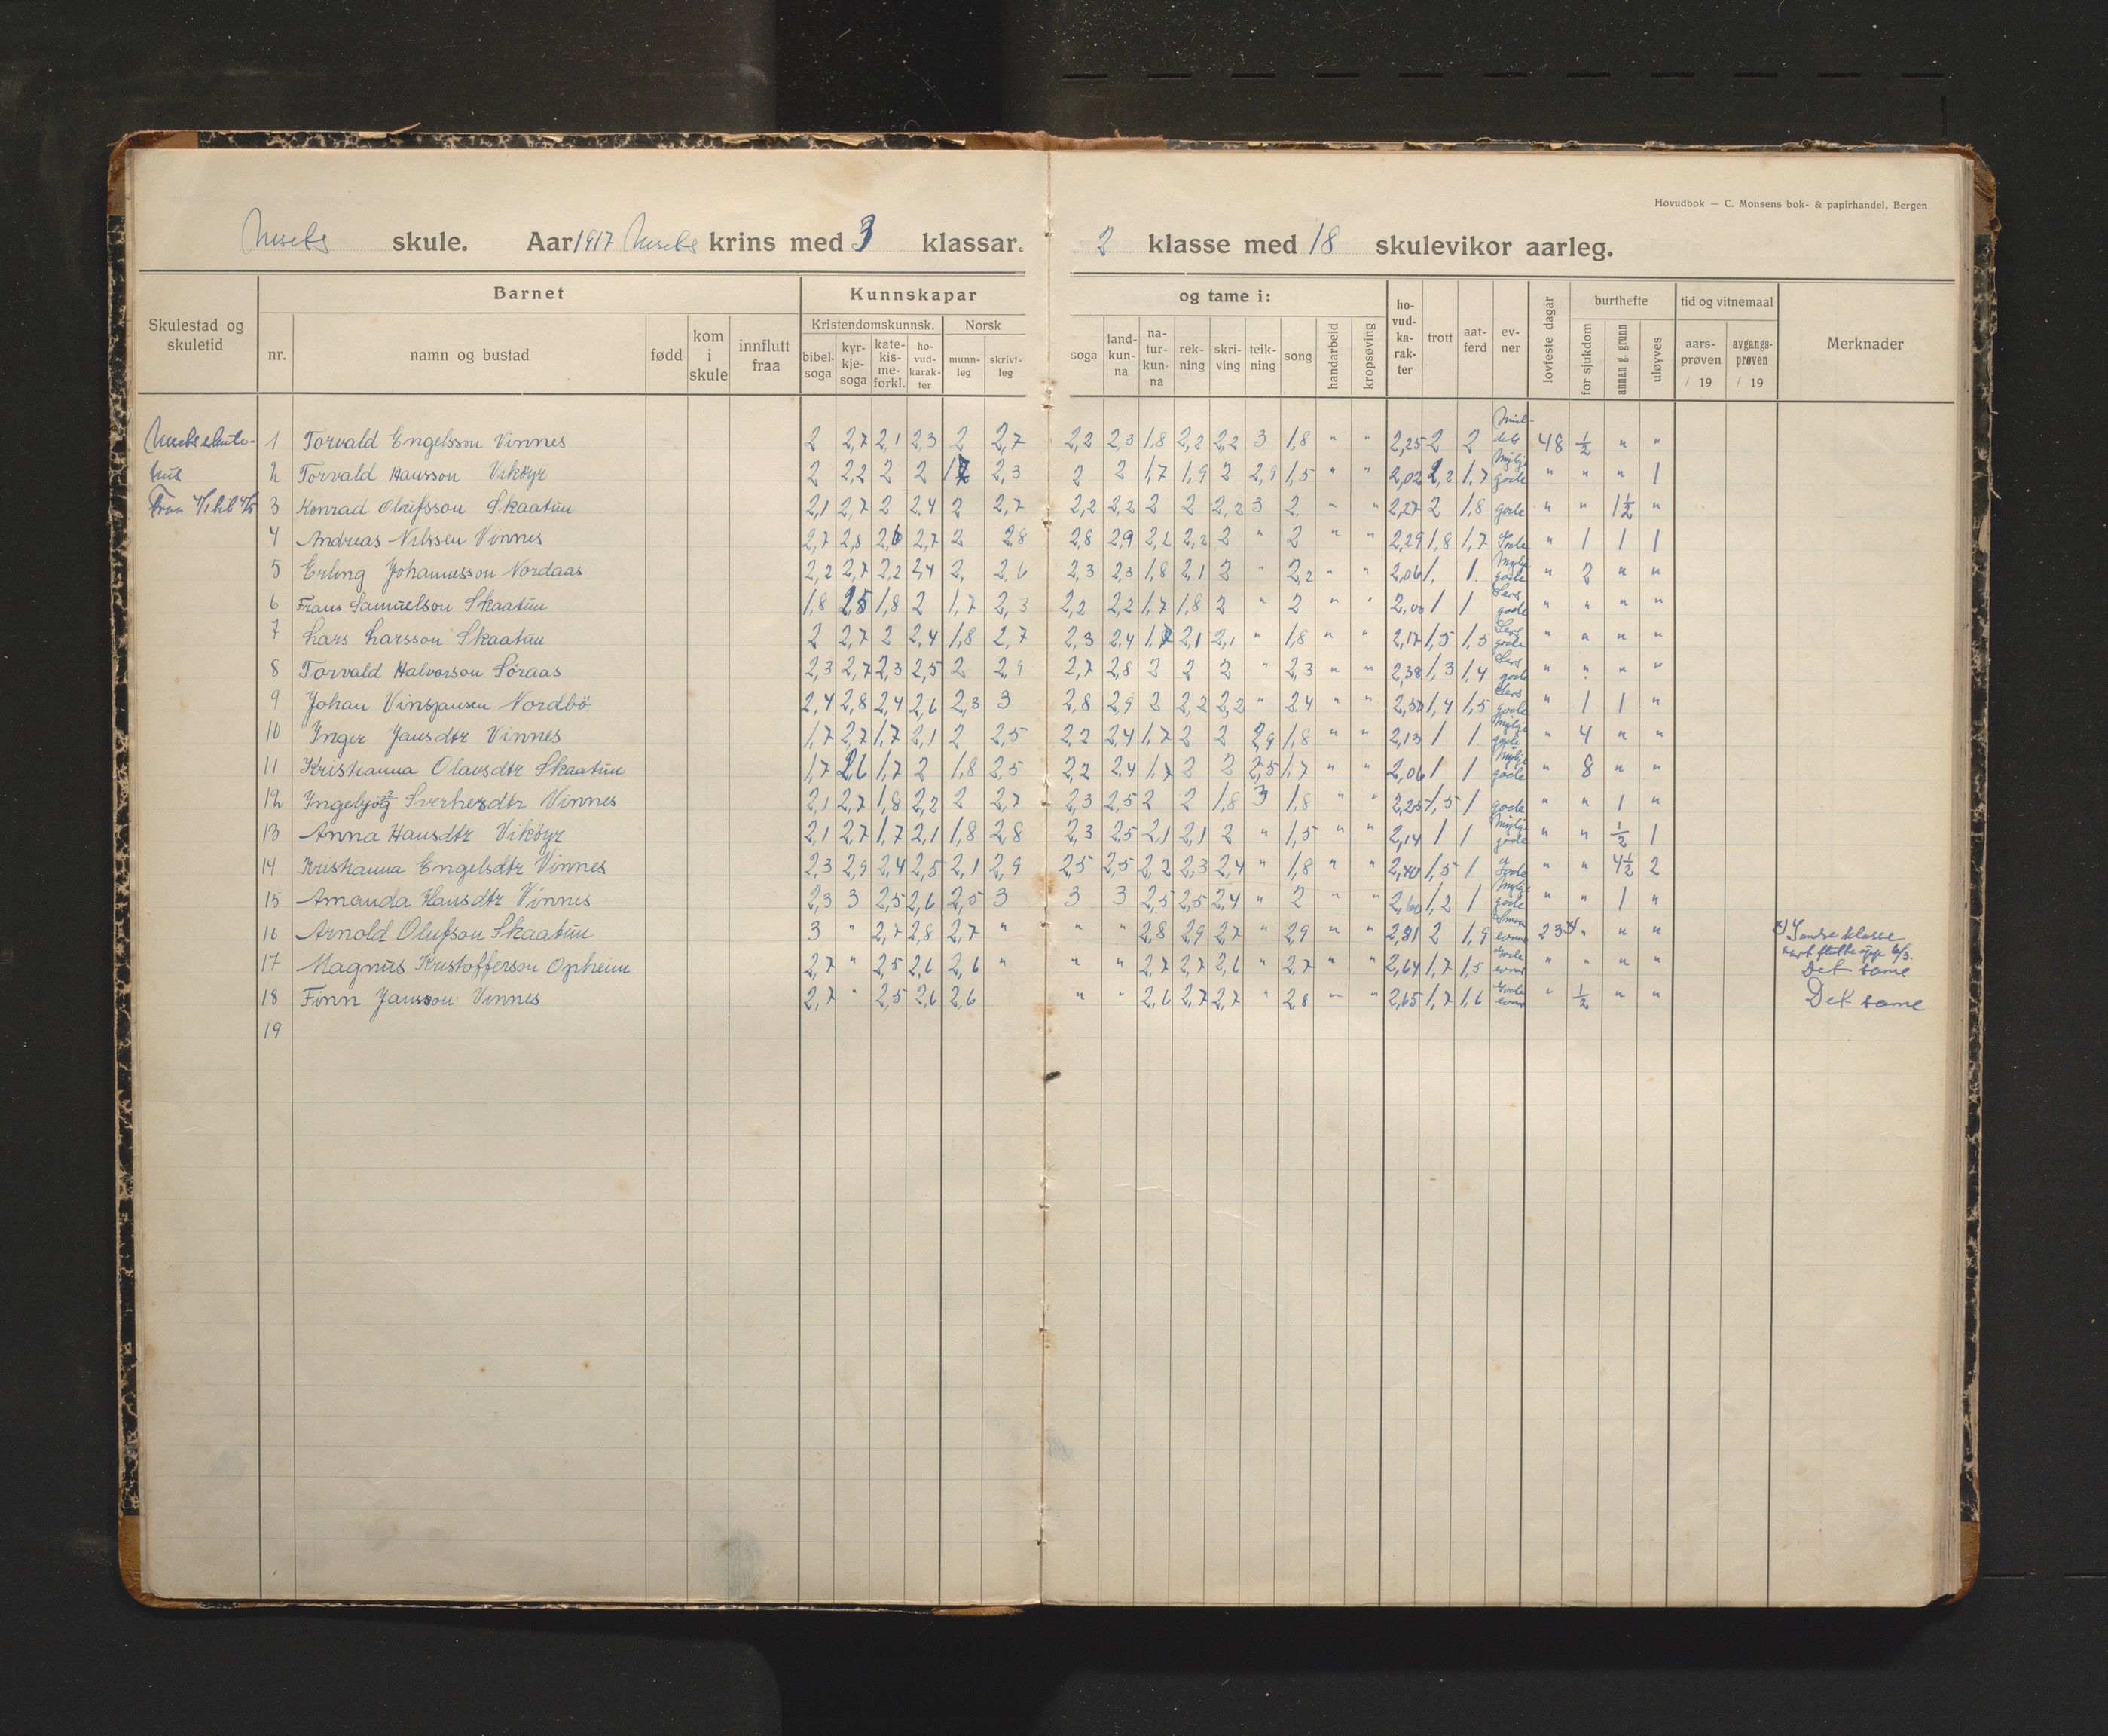 Hovudbok — C. Monsens bok- & papirhandel, Bergen
skule. Aar 1917 krins med 3 klassar. 2 klasse med 18 skulevikor aarleg.
Skulestad og skuletid
Barnet
nr.
namn og bustad
fødd
kom i skule
innflutt fraa
Kunnskapar
og tame i:
Kristendomskunnsk.
Norsk
bibelsoga
kyrkjesoga
katekismeforkl.
hovudkarakter
munnleg
skrivtleg
soga
landkunna
naturkunna
rekning
skriving
teikning
song
handarbeid
kropsøving
hovudkarakter
trott
aatferd
evner
lovfeste dagar
burthefte
for sjukdom
annan g. grunn
uløyves
tid og vitnemaal
aarsprøven / 19
avgangsprøven / 19
Merknader
1 Torvald Engelsson Vinnes 2 2,7 2,1 2,3 2 2,7 2,2 2,3 1,8 2,2 2,2 3 1,8 " " 2,25 2 2 48 ½ " "
2 Torvald Hansson Vikøyr 2 2,2 2 2 1,7 2,3 2 2 1,7 1,9 2 2,9 1,5 " " 2,02 2,2 1,7 Mykje gode " " " 1
3 Konrad Olufsson Skaatun 2,1 2,7 2 2,4 2 2,7 2,2 2,2 2 2 2,2 3 2 " " 2,27 2 1,8 gode " " 1½ "
4 Andreas Nilssen Vinnes 2,7 2,8 2,6 2,7 2 2,8 2,8 2,9 2,2 2,2 2 " 2 " " 2,29 1,8 1,7 Gode " 1 1 1
5 Erling Johannesson Nordaas 2,2 2,7 2,2 2,4 2, 2,6 2,3 2,3 1,8 2,1 2 " 2,2 " " 2,06 1, 1. Mykje gode " 2 " "
6 Frans Samuelson Skaatun 1,8 2,5 1,8 2 1,7 2,3 2,2 2,2 1,7 1,8 2 " 2 " " 2,00 1 1 Sers gode " " " "
7 Lars Larsson Skaatun 2 2,7 2 2,4 1,8 2,7 2,3 2,4 1,7 2,1 2,1 " 1,8 " " 2,17 1,5 1,5 Sers gode " " " "
8 Torvald Halvorson Søraas 2,3 2,7 2,3 2,5 2 2,9 2,7 2,8 2 2 2 " 2,3 " " 2,38 1,3 1,4 Sers gode " " " "
9 Johan Vinsjansen Nordbö. 2,4 2,8 2,4 2,6 2,3 3 2,8 2,9 2 2,2 2,2 " 2,4 " " 2,50 1,4 1,5 Sers gode " 1 1 "
10 Inger Jansdtr Vinnes 1,7 2,7 1,7 2,1 2 2,5 2,2 2,4 1,7 2 2 2,9 1,8 " " 2,13 1 1 Mykje gode " 4 " "
11 Kristianna Olavsdtr Skaatun 1,7 2,6 1,7 2 1,8 2,5 2,2 2,4 1,7 2 2 2,5 1,7 " " 2,06 1 1 Mykje gode " 8 " "
12 Sverkesdtr Vinnes 2,1 2,7 1,8 2,2 2 2,7 2,3 2,5 2 2 1,8 3 1,8 " " 2,25 1,5 1 gode " " 1 "
13 Anna Hansdtr Vikøyr 2,1 2,7 1,7 2,1 1,8 2,8 2,3 2,5 2,1 2,1 2 " 1,5 " " 2,14 1 1 Mykje gode " " ½ 1
14 Kristianna Engelsdtr Vinnes 2,3 2,9 2,4 2,5 2,1 2,9 2,5 2,5 2,2 2,3 2,4 " 1,8 " " 2,40 1,5 1 Gode " " 4½ 2
15 Amanda Hansdtr Vinnes 2,3 3 2,5 2,6 2,5 3 3 3 2,5 2,5 2,4 " 2 " " 2,60 1,2 1 Mykje gode " " 1 "
16 Arnold Olufson Skaatun 3 " 2,7 2,8 2,7 " " " 2,8 2,9 2,7 " 2,9 " " 2,81 2 1,9 evner 23 x) " " " x) I andre klasse vart flutte upp 6/3.
17 Magnus Kristofferson Opheim 2,7 " 2,5 2,6 2,6 " " " 2,7 2,7 2,6 " 2,7 " " 2,64 1,7 1,5 Gode evner " " " " Det same
18 Finn Jansson Vinnes 2,7 " 2,5 2,6 2,6 " " 2,6 2,7 2,7 " 2,8 " " 2,65 1,7 1,6 Gode evner " ½ " " Det same
19